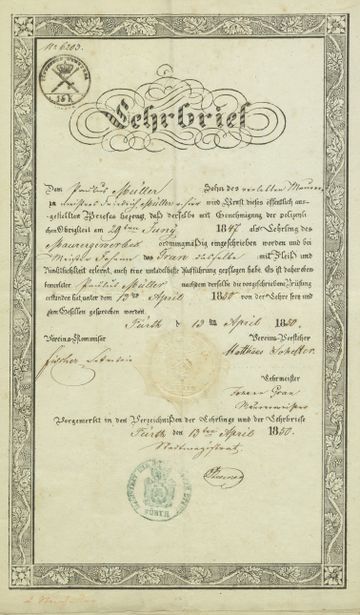 No 6203.
15 K
Lehrbrief
Dem Paulus Müller Sohn des verlebten Maurer-
meisters Friedrich Müller wird Kraft dieses öffentlich aus-
gestellten Briefes bezeugt, daß derselbe mit Genehmigung der polizei-
lichen Obrigkeit am 29ten Juny 1847 als Lehrling des
Maurergewerbes ordnungsmäßig eingeschrieben worden und bei
Meister Johann Gran daselbst mit Fleiß und
Pünktlichkeit erlernt, auch eine untadelhafte Aufführung gepflogen habe. Es ist daher oben-
benannter Paulus Müller nachdem derselbe die vorgeschriebene Prüfung
erstanden hat unter dem 13ten April 1850 von der Lehre frey und
zum Gesellen gesprochen worden.
Fürth d 13ten April 1850.
Vereins-Kommissär Vereins-Vorsteher
Fischer
Matthäus
Lehrmeister
Johann Gran
Maurermeister
Vorgemerkt in den Verzeichnissen der Lehrlinge und der Lehrbriefe
Fürth den 13ten April 1850.
Stadtmagistrat
MAGISTRAT DER STADT
FÜRTH